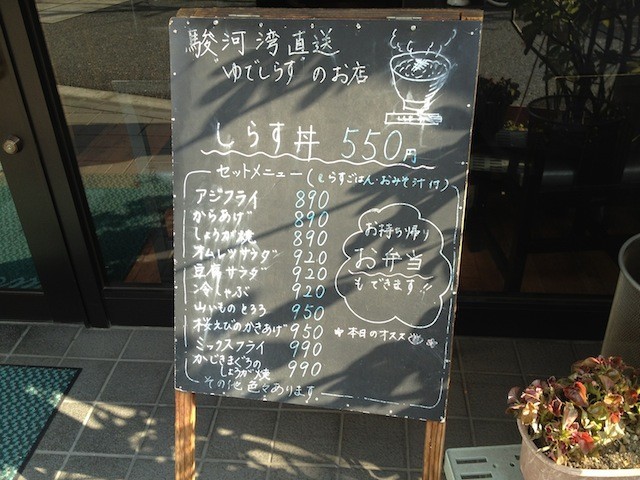 駿河湾直送
"ゆでしらす"のお店
しらす丼 550円
セットメニュー(しらすごはん・おみそ汁付)
アジフライ 890
からあげ 890
しょうが焼 890
オムレツサラダ 920
豆腐サラダ 920
冷しゃぶ 920
山いものとろろ 950
桜えびのかきあげ 950
ミックスフライ 990
かじきまぐろの
しょうが焼 990
その他色々あります。
お持ち帰り
お弁当
もできます!!
本日のオススメ